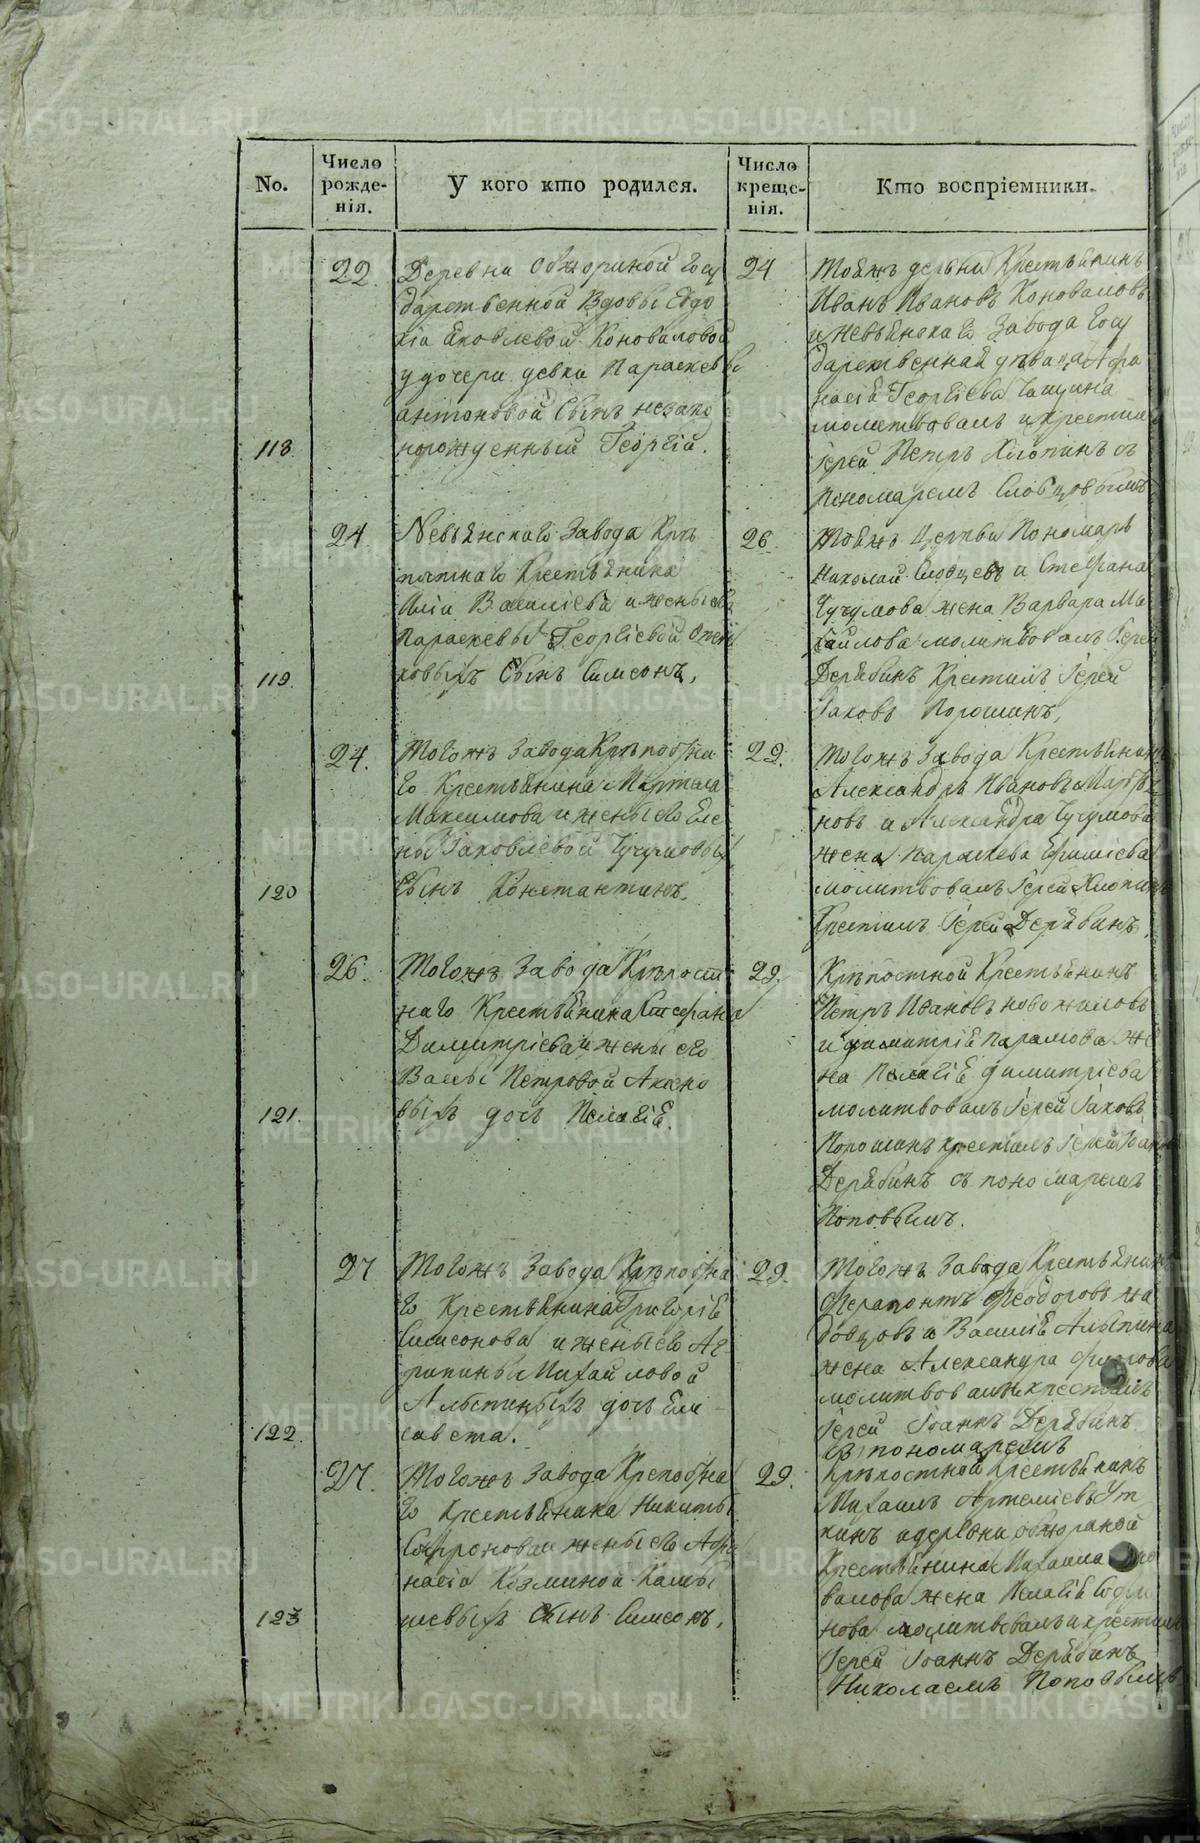 No.
Число рожде- нія.
У кого кто родился.
Число креще- нія.
Кто воспріемники.
118.
22.
Деревни Обжориной Госу
дарственной Вдовы Евдо
кіи Яковлевой Коноваловой
у дочери девки Параскевы
антоновой Сынъ незако
норожденный Георгій.
24
тояжъ дервни Крестьянинъ
Иванъ Ивановъ Коноваловъ
и Невьянскаго Завода Госу
дарственная девица Афа
насія Георгіева
молитвовалъ и крестилъ
Іерей Петръ Хлопинъ съ
пономаремъ Словцовымъ
119.
24
Невьянскаго Завода Крѣ
постнаго Крестьянина
Иліи Василіева и жены его
Параскевы Георгіевой
ковыхъ Сынъ Симеонъ.
26.
тояжъ Церкви Пономарь
Николай Словцевъ и Стефана
Чучумова жена Варвара Ми
хайлова молитвовалъ Іерей
Дерябинъ Крестилъ Іерей
Іаковъ Порошинъ,
120
24.
Тогожъ Завода Крѣпостна
го Крестьянина
Максимова и жены его Еле
ны Яковлевой Чучумовых
Сынъ Константинъ.
29.
Тогожъ Завода Крестьянинъ
Александръ Ивановъ
новъ и Александра Чучумова
жена Параскева
молитвовалъ Іерей Хлопинъ
Крестилъ Іерей Дерябинъ
121.
26.
Тогожъ Завода Крѣпост
наго Крестьянина Стефана
Димитріева и жены его
Вассы Петровой Аксено
выхъ дочь Пелагія.
29.
Крѣпостной Крестьянинъ
Петръ Ивановъ новожиловъ
и димитрія Парамова же
на Пелагія димитріева
молитвовалъ Іерей Іаковъ
Порошинъ крестилъ Іерей Іоаннъ
Дерябинъ съ пономаремъ
Поповымъ.
122.
27
Тогожъ Завода Крѣпостна
го Крестьянина Григорія
Симеонова и жены его Аг
рипины Михайловой
дочь Ели
савета.
29.
Тогожъ Завода Крестьянинъ
Ферапонтъ Феодоровъ
и Василія
жена Александра
молитвовалъ и крестилъ
Іерей Іоаннъ Дерябинъ
съ пономаремъ
123
27.
Тогожъ Завода Крепостна
го Крестьянина Никиты
Софронова и жены его Афа
насіи Козминой
шевыхъ Сынъ Симеонъ,
29.
Крѣпостной Крестьянинъ
Михаилъ Артеміевъ Ут
кинъ и деревни обжориной
Крестьянина Михаила Коно
валова жена Пелагія
нова молитвовалъ и крестилъ
Іерей Іоаннъ Дерябинъ
Николаемъ Поповымъ
METRIKI.GASO-URAL.RU